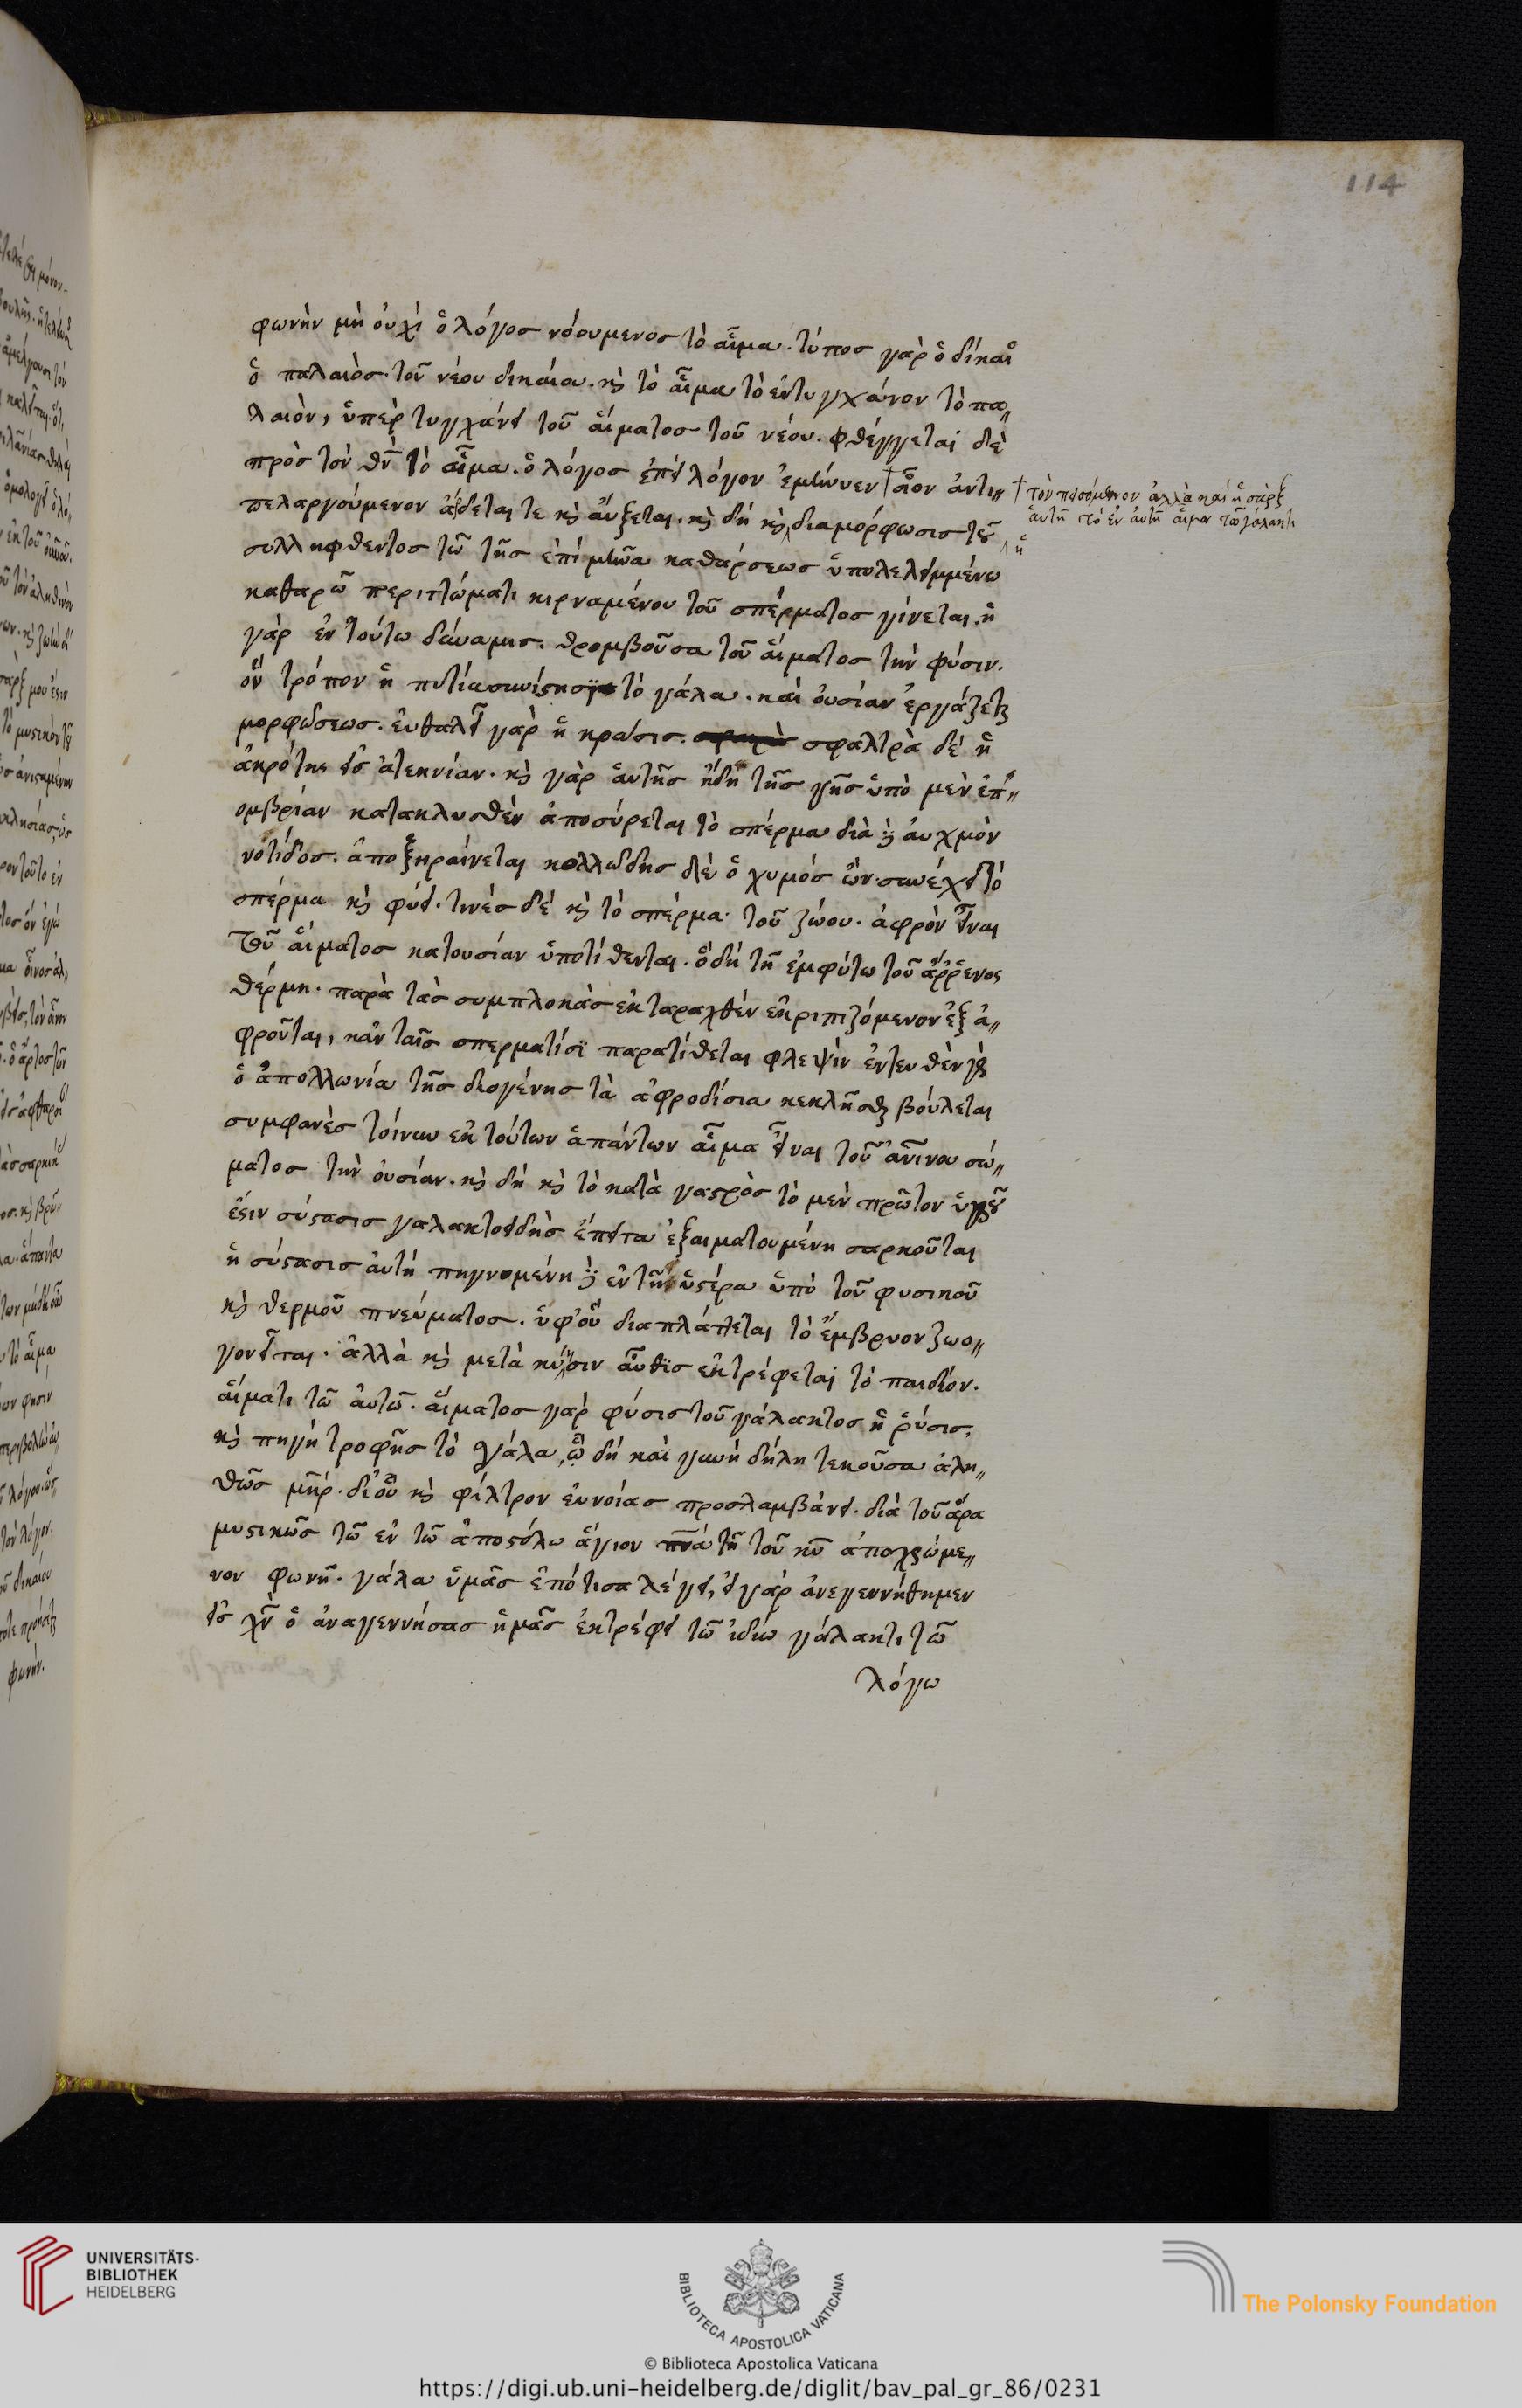 114
φωνὴν μὴ οὐχὶ ὁ λόγος νοούμενος τὸ αἷμα. τύπος γὰρ ὁ δίκαι
ὁ παλαιὸς τοῦ νέου δικαίου. κ τὸ αἷμα τὸ ἐντυγχάνον τὸ πα
λαιὸν, ὑπερτυγχάνει τοῦ αἵματος τοῦ νέου. φθέγγεται δὲ
πρὸς τὸν θν τὸ αἷμα. ὁ λόγος ἐπεὶ λόγον ἐμήνυεν † οἷον ἀντι
πελαργούμενον ἄρδεταί τε κ αὔξεται. κ δὴ κ διαμόρφωσις τοῦ
συλληφθέντος τῶ τῆς ἐπιμήνου καθάρσεως ὑπολελειμμένω
καθαρῶ περιττώματι κιρναμένου τοῦ σπέρματος γίνεται. ἡ
γὰρ ἐν τούτω δύναμις. θρομβοῦσα τοῦ αἵματος τὴν φύσιν.
ὃν τρόπον ἡ πυτία συνίστησι τὸ γάλα. καὶ οὐσίαν ἐργάζετ
μορφώσεως. εὐθαλεῖ γὰρ ἡ κρᾶσις. σφαλερὰ δὲ ἡ
ἀκρότης εἰς ἀτεκνίαν. κ γὰρ αὐτῆς ἤδη τῆς γῆς ὑπὸ μὲν ἐπ
ομβρίαν κατακλυσθὲν ἀποσύρεται τὸ σπέρμα διὰ δὲ αὐχμὸν
νοτίδος. ἀποξηραίνεται κολλώδης δὲ ὁ χυμὸς ὢν. συνέχει τὸ
σπέρμα κ φύει. τινὲς δὲ κ τὸ σπέρμα τοῦ ζώου. ἀφρὸν εἶναι
τοῦ αἵματος κατουσίαν ὑποτίθενται. ὃ δὴ τῆ ἐμφύτω τοῦ ἄρρενος
θέρμη. παρὰ τὰς συμπλοκὰς ἐκταραχθὲν ἐκριπιζόμενον ἐξα
φροῦται, κἂν ταῖς σπερματίσι παρατίθεται φλεψὶν ἐντευθὲν γὰρ
ὁ ἀπολλωνιάτης διογένης τὰ ἀφροδίσια κεκλῆσθ βούλεται
συμφανὲς τοίνυν ἐκ τούτων ἁπάντων αἷμα εἶναι τοῦ ἀνίνου σώ
ματος τὴν οὐσίαν. κ δὴ κ τὸ κατὰ γαστρὸς τὸ μὲν πρῶτον ὑγροῦ
ἐστιν σύστασις γαλακτοειδὴς ἔπειτα ἐξαιματουμένη σαρκοῦται
ἡ σύστασις αὐτὴ πηγνυμένη δὲ ἐν τῆ ὑστέρα ὑπὸ τοῦ φυσικοῦ
κ θερμοῦ πνεύματος. ὑφ' οὗ διαπλάττεται τὸ ἔμβρυον ζωο
γονεῖται. ἀλλὰ κ μετὰ κύησιν αὖθις ἐκτρέφεται τὸ παιδίον.
αἵματι τῶ αὐτῶ. αἵματος γὰρ φύσις τοῦ γάλακτος ἡ ῥύσις,
κ πηγὴ τροφῆς τὸ γάλα, ὧ δὴ καὶ γυνὴ δήλη τεκοῦσα ἀλη
θῶς μηρ. δι' οὗ κ φίλτρον εὐνοίας προσλαμβάνει. διὰ τοῦ ἄρα
μυστικῶς τῶ ἐν τῶ ἀποστόλω ἅγιον πνα τῆ τοῦ κυ ἀποχρώμε
νον φωνῆ. γάλα ὑμᾶς ἐπότισα λέγει, εἰ γὰρ ἀνεγεννήθημεν
εἰς χν ὁ ἀναγεννήσας ἡμᾶς ἐκτρέφει τῶ ἰδίω γάλακτι τῶ
λόγω
† τὸν ποούμενον ἀλλὰ καὶ ἡ σὰρξ
αὐτὴ τὸ ἐν αὐτῆ αἷμα τῶ γάλακτι
ἡ
UNIVERSITÄTS-
BIBLIOTHEK
HEIDELBERG
BIBLIOTECA APOSTOLICA VATICANA
The Polonsky Foundation
© Biblioteca Apostolica Vaticana
https://digi.ub.uni-heidelberg.de/diglit/bav_pal_gr_86/0231